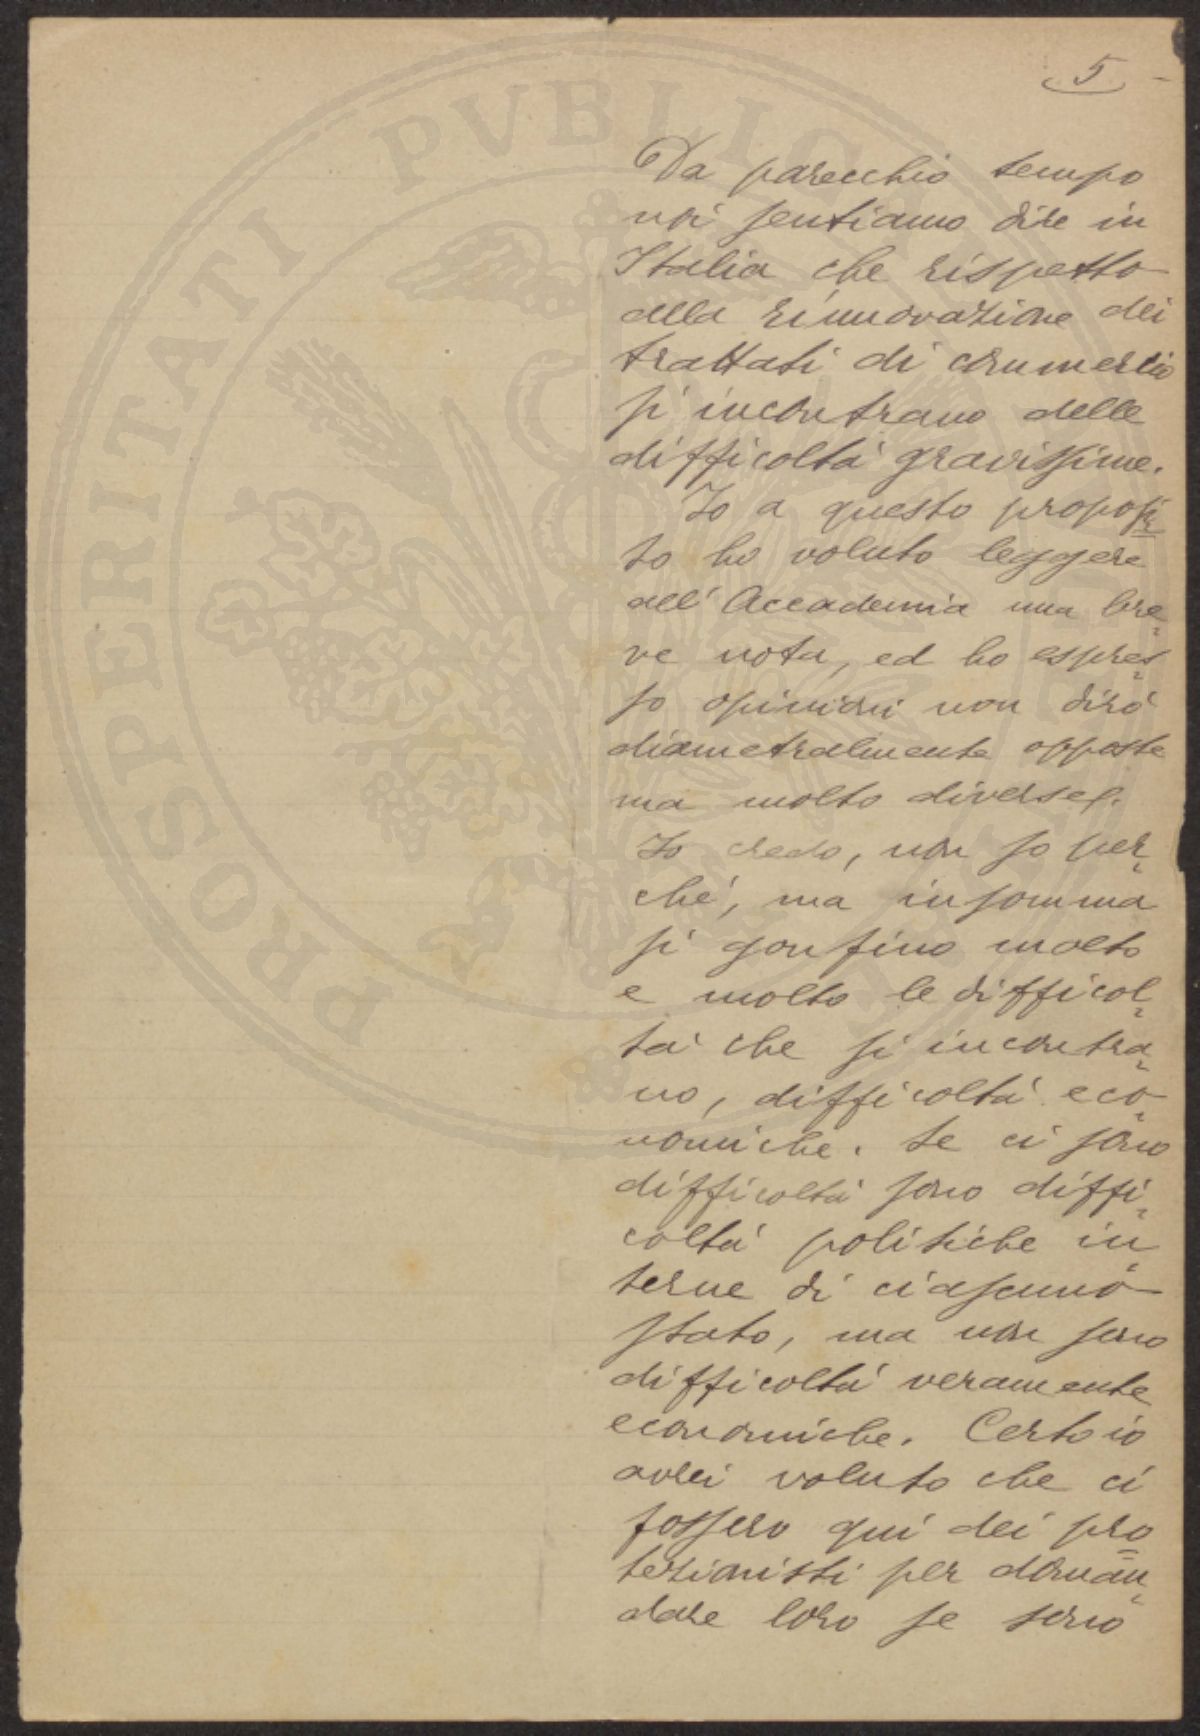 5
Da parecchio tempo
noi sentiamo dire in
Italia che rispetto
alla rinnovazione dei
trattati di commercio
si incontrano delle
difficoltà gravissime.
Io a questo proposi
to ho voluto leggere
all'Accademia una bre
ve nota, ed ho espres
so opinioni non dirò
diametralmente opposte
ma molto diverse.
Io credo, non so per
ché, ma insomma
si gonfino molto
e molto le difficol
tà che si incontra
no, difficoltà eco
nomiche. Se ci sono
difficoltà sono diffi
coltà politiche in
terne di ciascuno
stato, ma non sono
difficoltà veramente
economiche. Certo io
avrei voluto che ci
fossero qui dei pro
tezionisti per doman
dare loro se sono
PROSPERITATI PVBLICAE